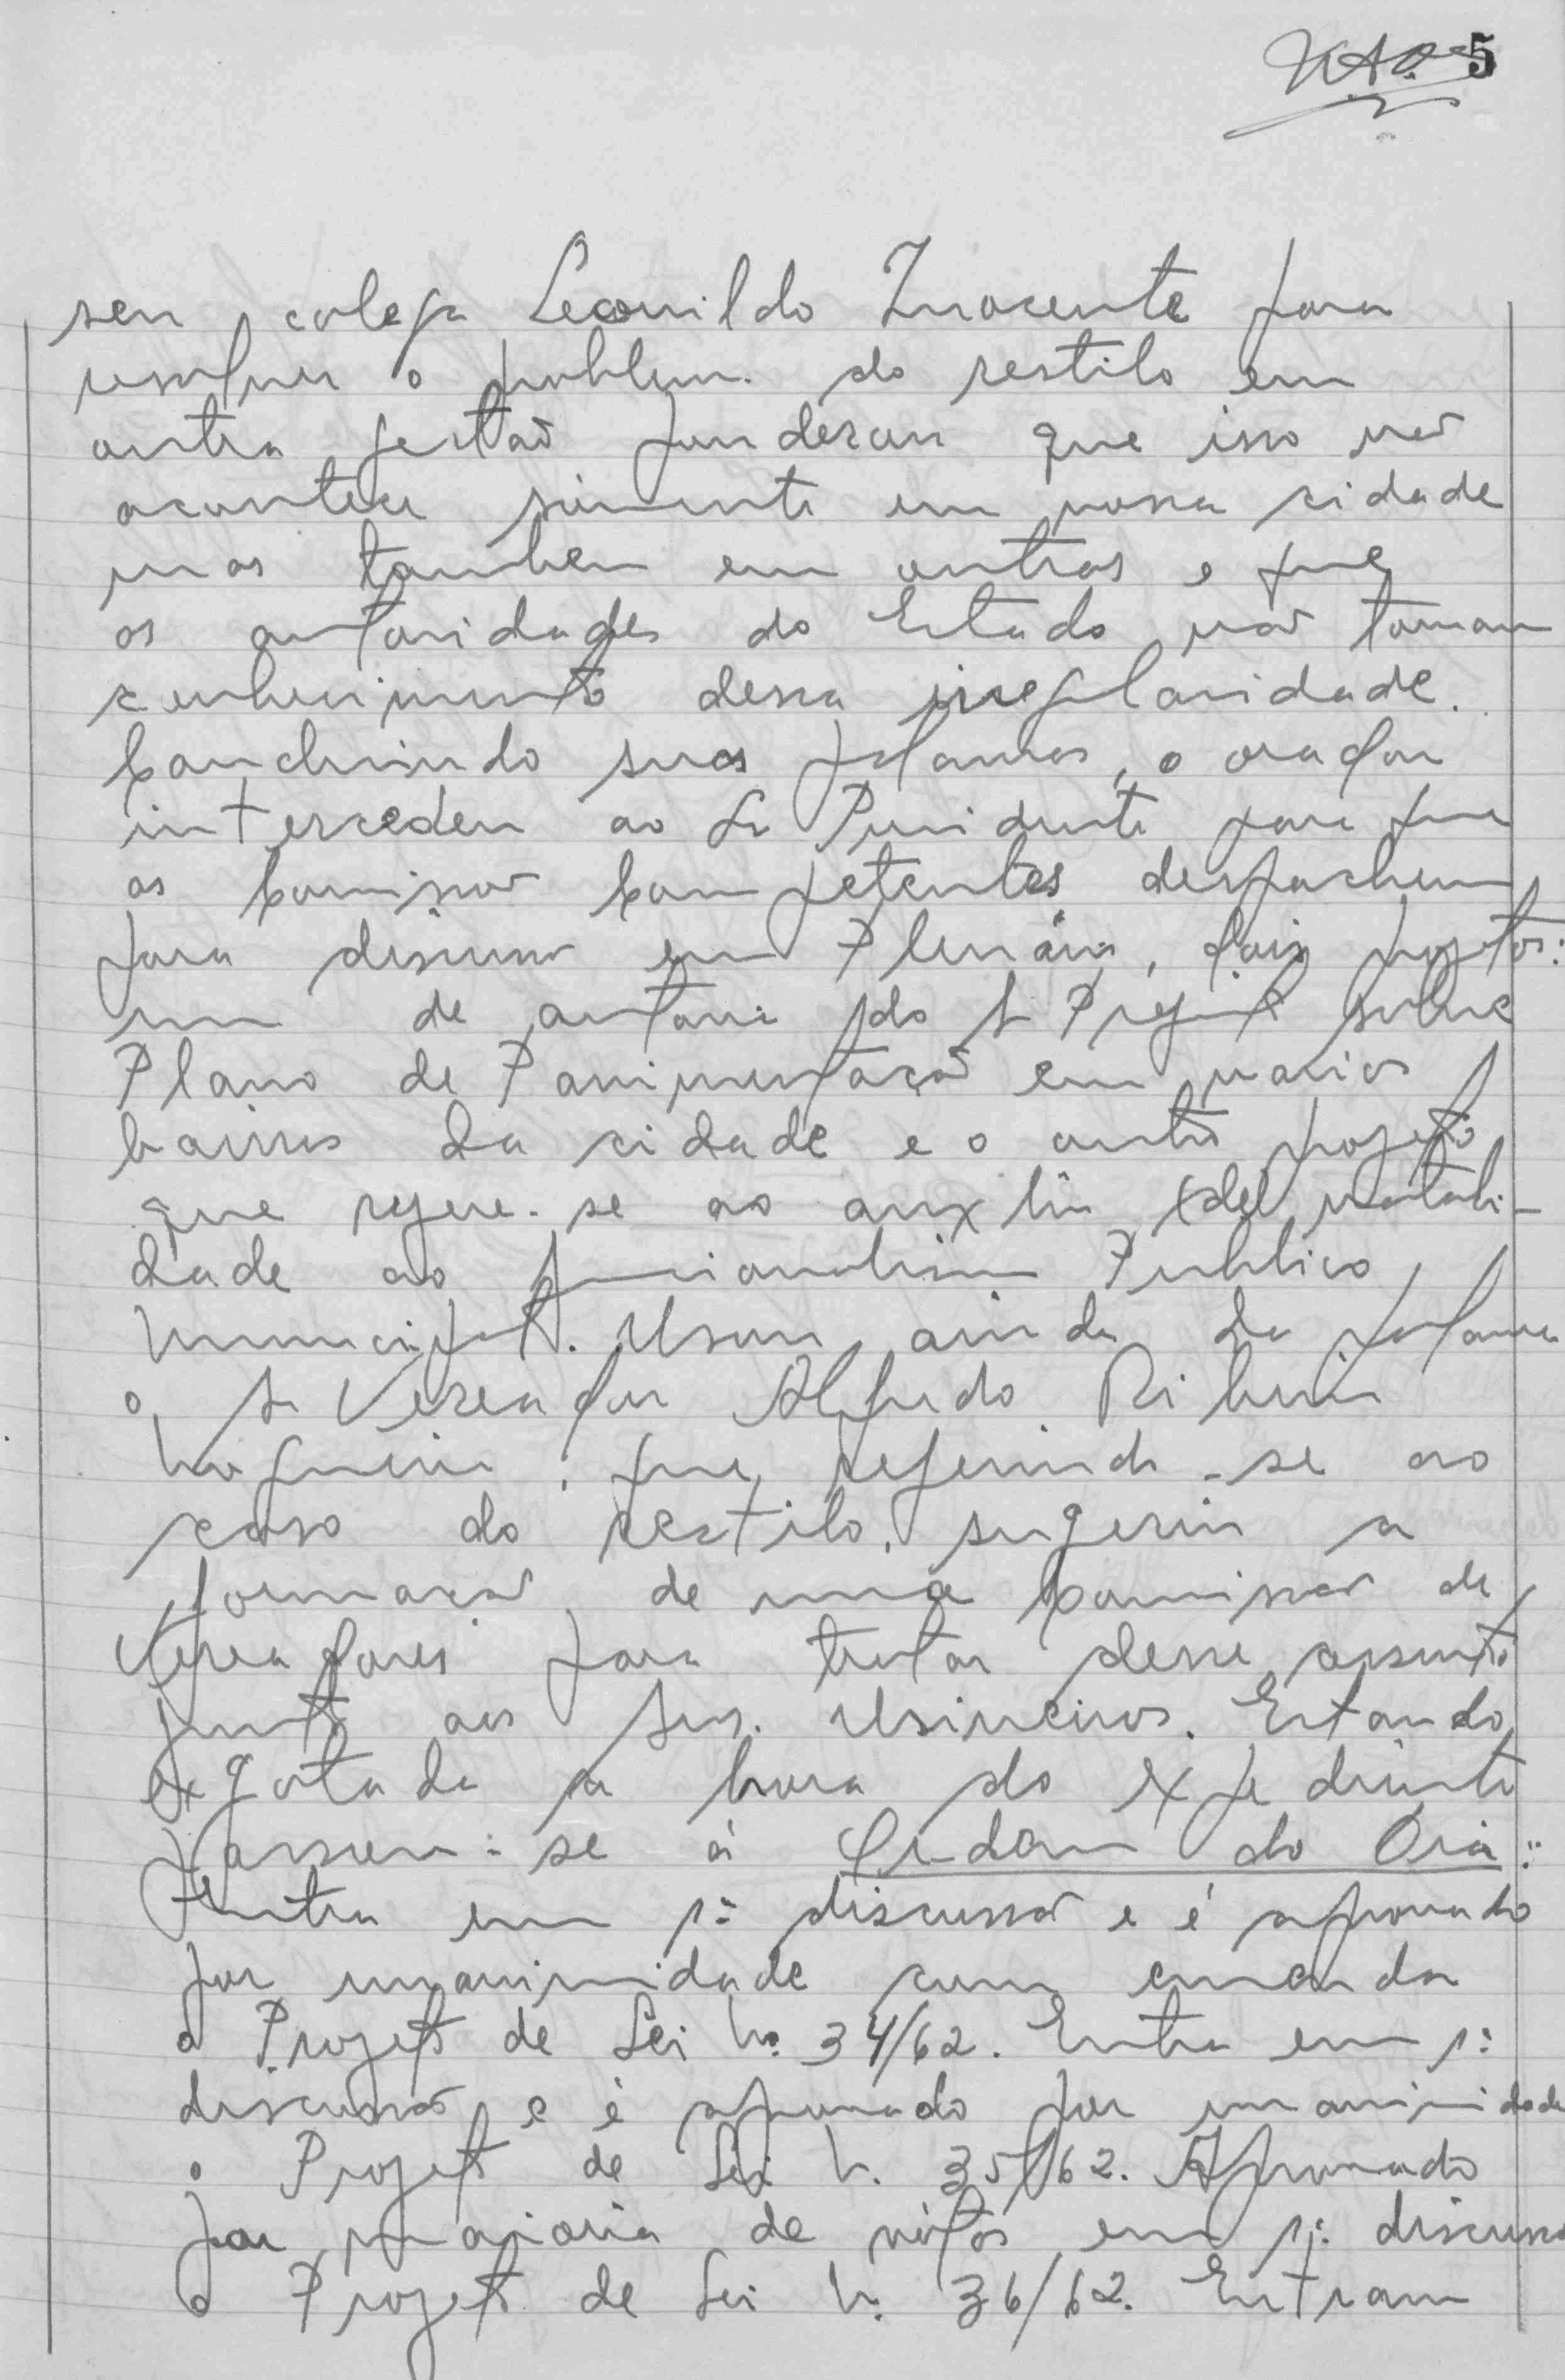 5
seu colega Leonildo Inocente para
resolver o problema do restilo em
outra gestão ponderou que isso não
acontece sómente em nossa cidade
mas tambem em outras e que
as autoridades do Estado não tomam
conhecimento dessa irregularidade.
Concluindo suas palavras, o orador
intercedeu ao Sr Presidente para que
as Comissões Competentes despachem
para discussão em Plenário, dois projetos:
um de autoria do Sr Prefeito sobre
Plano de Pavimentação em varios
bairros da cidade e o outro projeto
que refere-se ao auxílio de natali-
dade ao funcionalismo Publico
Municipal. Usou ainda da palavra
o Sr Vereador Alfredo Ribeiro
Nogueira que, referindo-se ao
caso do restilo, sugeriu a
formação de uma Comissão de
Vereadores para tratar desse assunto
junto aos Srs. Usineiros. Estando
exgotada a hora do expediente
passou-se á Ordem do Dia:
Entra em 1ª discussão e é aprovado
por unanimidade com emenda
o Projeto de Lei Nº 34/62. Entra em 1ª
discussão e é aprovado por unanimidade
o Projeto de Lei N. 35/62. Aprovado
por maioria de vótos em 1ª discussão
o Projeto de Lei N. 36/62. Entram